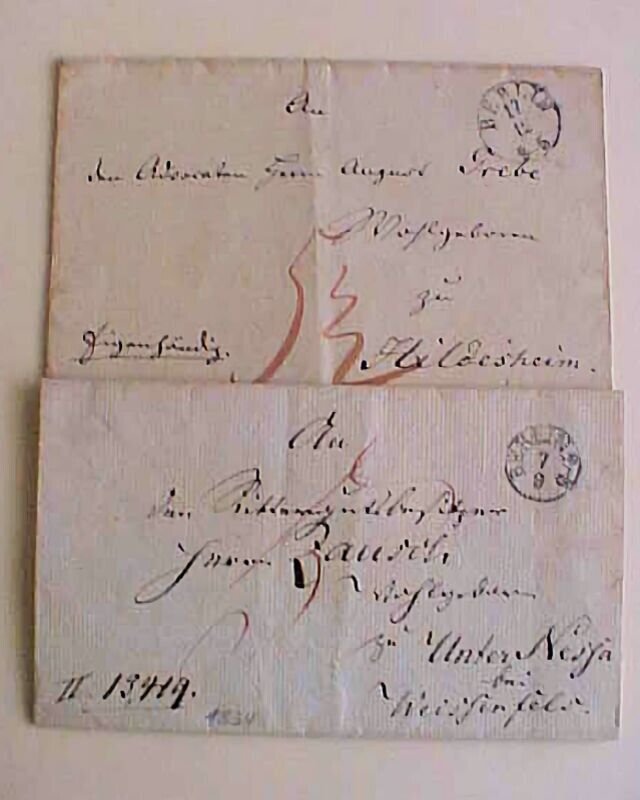 An
BERLIN
17
12
den Advocaten Herrn August Grebe
Wohlgeboren
zu
Eigenhändig.
Hildesheim.
An
BERLIN
7
9
den Rittergutsbesitzer
Herrn Bausch,
Wohlgeboren
zu Unter Nessa
bei
Weissenfels.
II. 13419.
1834